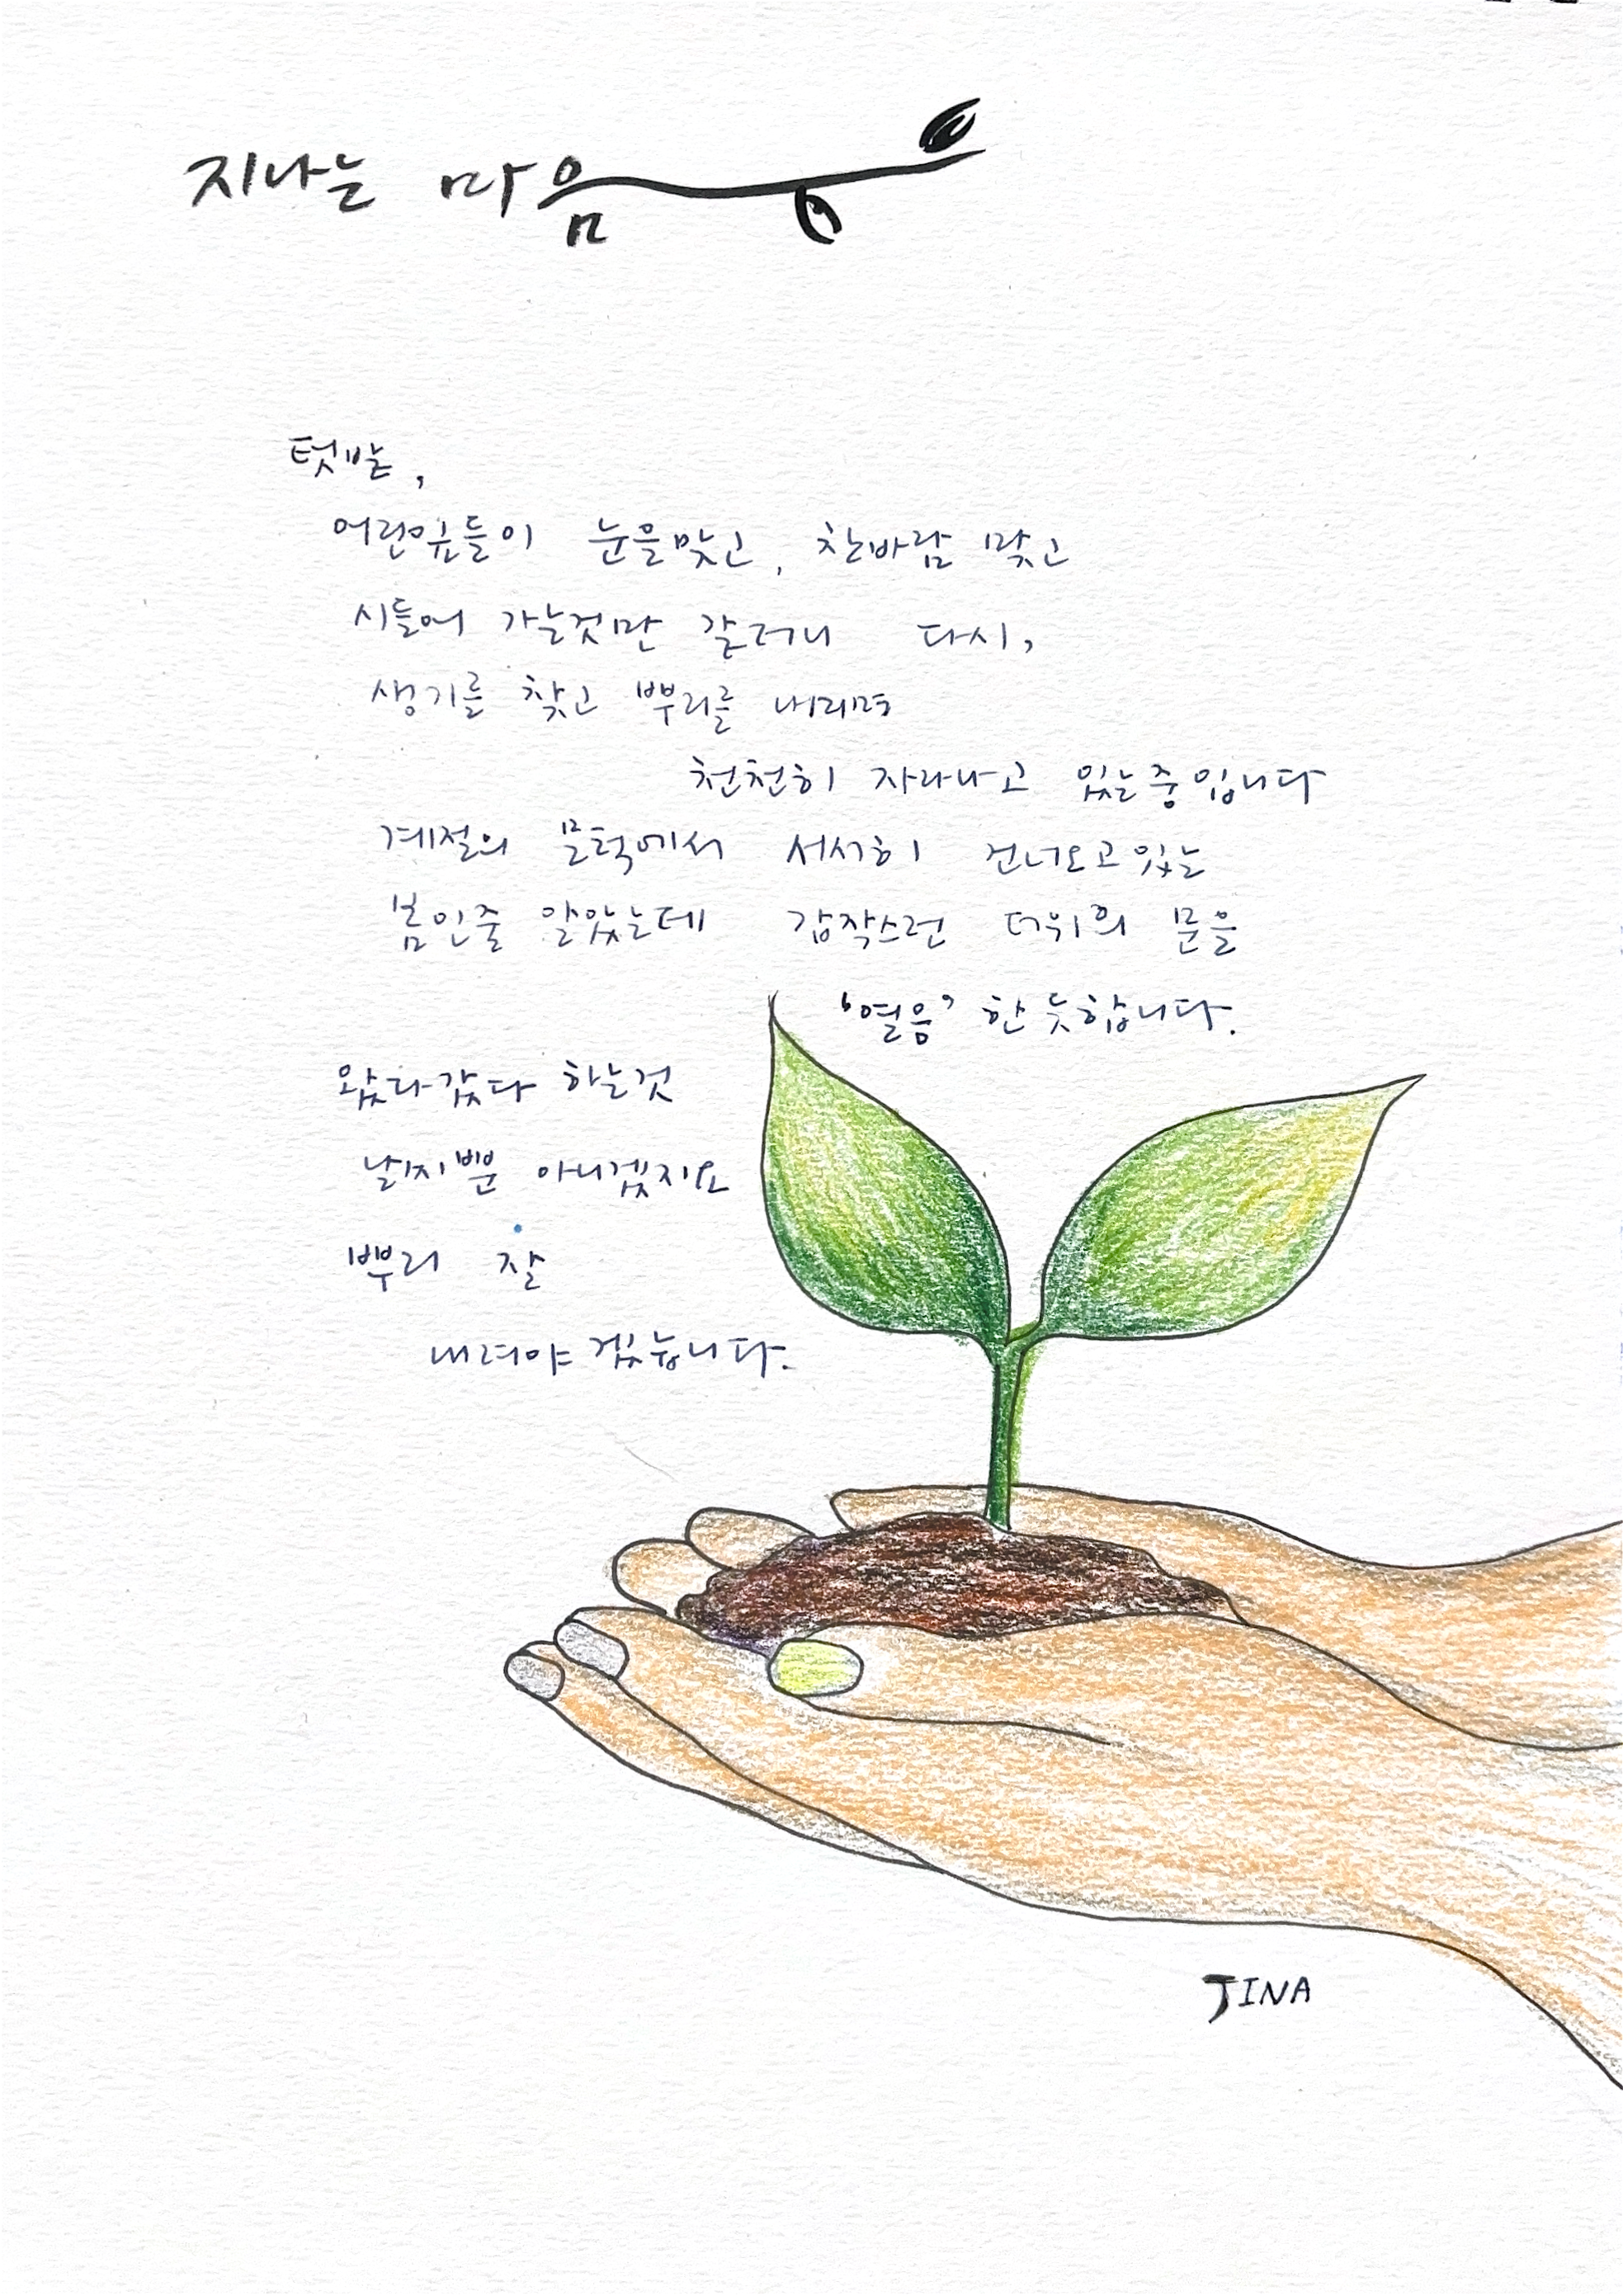 지나는 마음
텃밭,
어린잎들이 눈을맞고, 찬바람 맞고
시들어 가는것만 같더니 다시,
생기를 찾고 뿌리를 내리며
천천히 자라나고 있는중입니다
계절의 문턱에서 서서히 건너오고있는
봄인줄 알았는데 갑작스런 더위의 문을
'열음' 한 듯합니다.
왔다갔다 하는것
날씨뿐 아니겠지요
뿌리 잘
내려야 겠습니다.
JINA